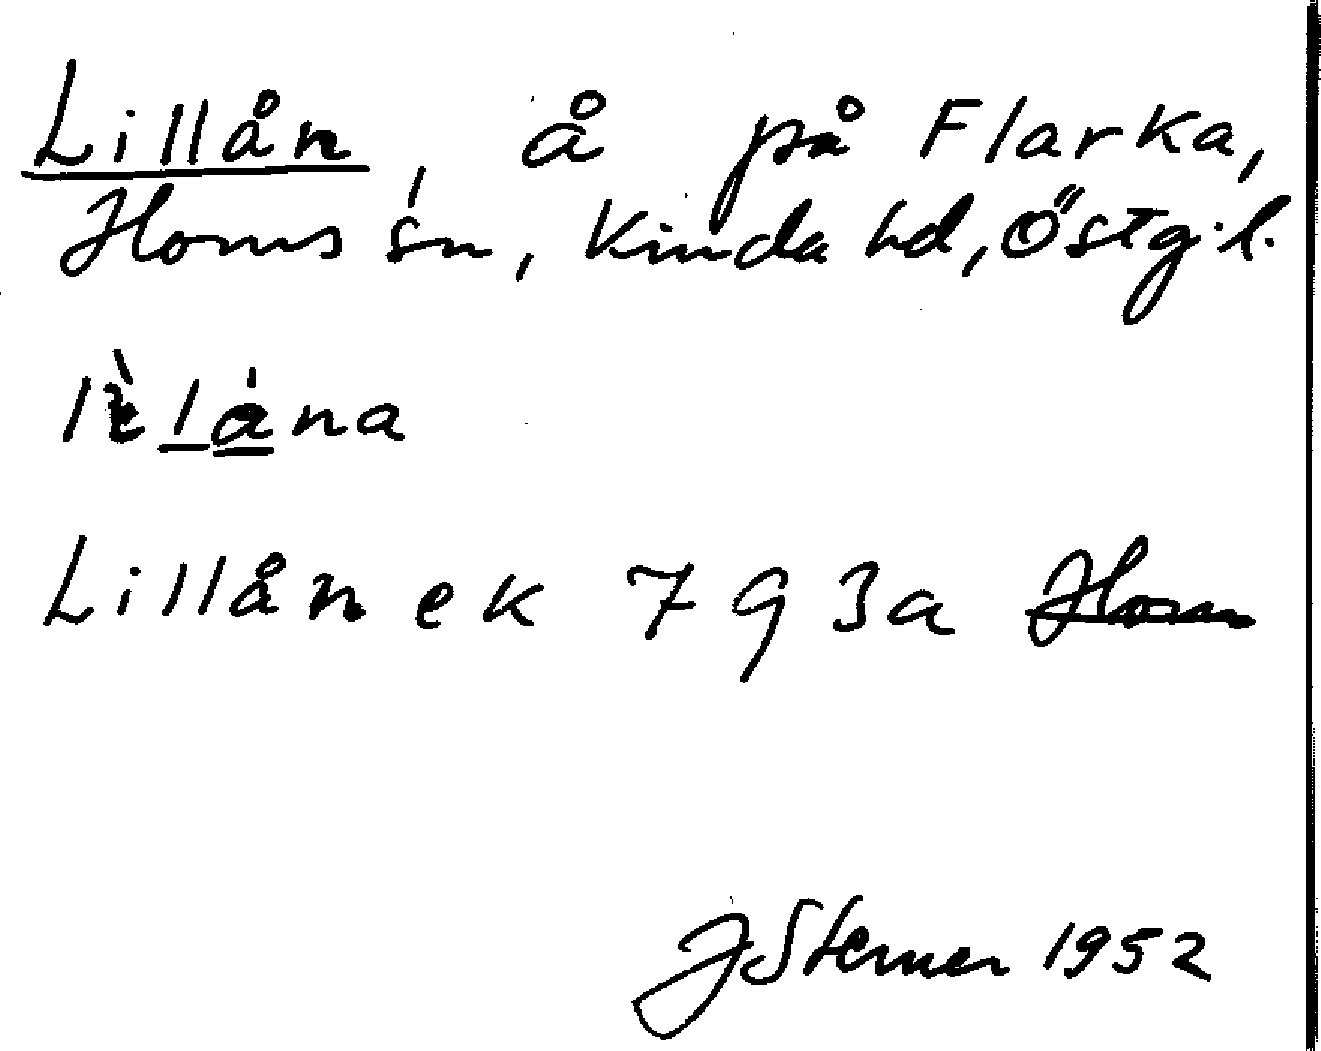 Lillån, å på Flarka,
Horns sn, Kinda hd, Östg.l.
Lillån ek 793a
J Sterner 1952